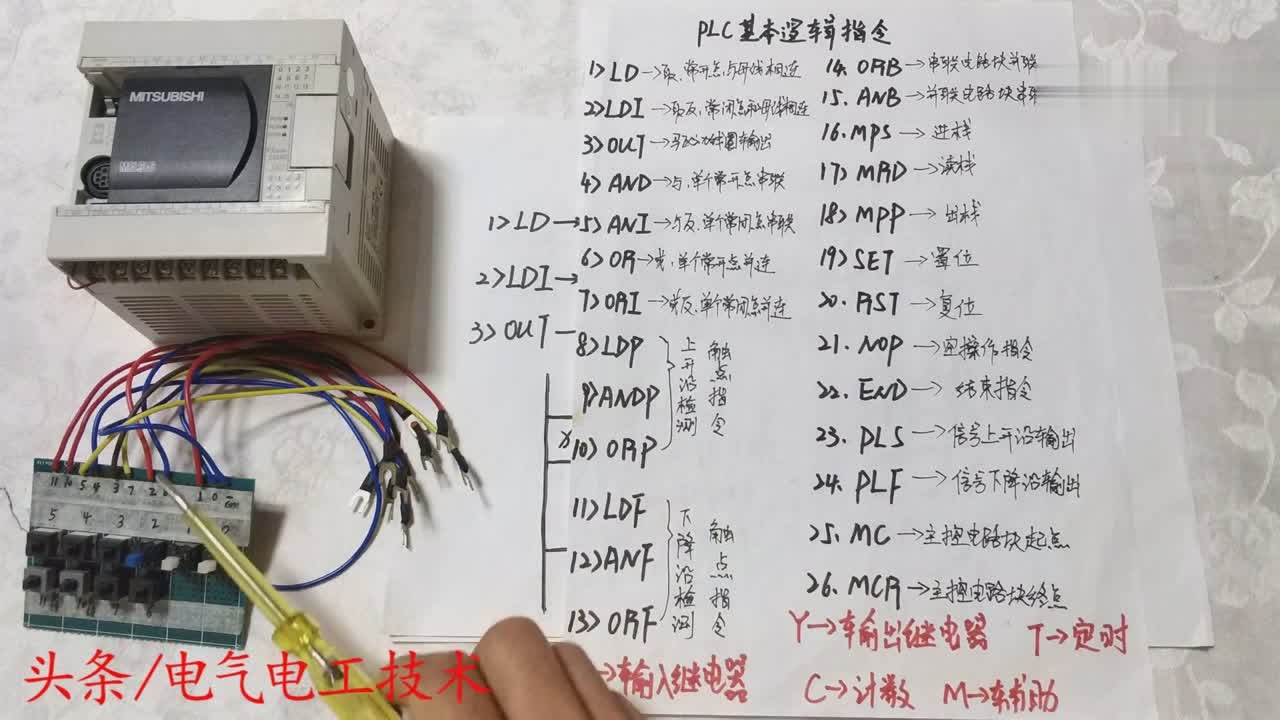 PLC基本逻辑指令
1>LD→取,常开点与母线相连
2>LDI→取反,常闭点和母线相连
3>OUT→驱动线圈输出
4>AND→与,单个常开点串联
5>ANI→与反,单个常闭点串联
6>OR→或,单个常开点并连
7>ORI→或反,单个常闭点并连
8>LDP
9>ANDP
10>ORP
上升沿检测
触点指令
11>LDF
12>ANF
13>ORF
下降沿检测
触点指令
14.ORB→串联电路块并联
15.ANB→并联电路块串联
16.MPS→进栈
17>MRD→读栈
18>MPP→出栈
19>SET→置位
20.RST→复位
21.NOP→空操作指令
22.END→结束指令
23.PLS→信号上升沿输出
24.PLF→信号下降沿输出
25.MC→主控电路块起点
26.MCR→主控电路块终点
→输入继电器
Y→输出继电器
T→定时
C→计数
M→辅助
1>LD→
2>LDI→
3>OUT—
X
MITSUBISHI
11 10 5 4 3 7 2
1 0
5 4 3 2
头条/电气电工技术